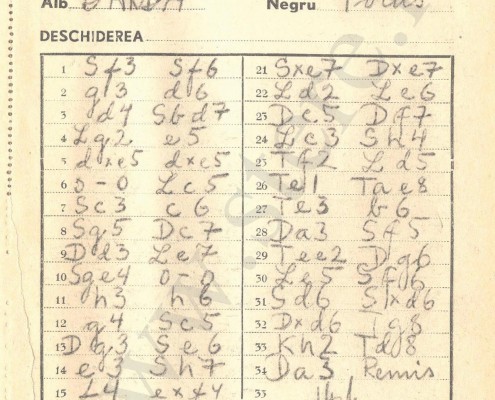 Alb BANDA Negru
DESCHIDEREA
1 Sf3 Sf6 21 Sxe7 Dxe7
2 g3 d6 22 Ld2 Le6
3 d4 Sbd7 23 Dc5 Df7
4 Lg2 e5 24 Lc3 Sh4
5 dxe5 dxe5 25 Tf2 Ld5
6 0-0 Lc5 26 Te1 Tae8
7 Sc3 c6 27 Te3 b6
8 Sg5 Dc7 28 Da3 Sf5
9 Dd3 Le7 29 Tee2 Dg6
10 Sge4 0-0 30 Le5 Sf6
11 h3 h6 31 Sd6 Sxd6
12 g4 Sc5 32 Dxd6 Tg8
13 Dg3 Se6 33 Kh2 Td8
14 e3 Sh7 34 Da3 Remis
15 f4 exf4 35